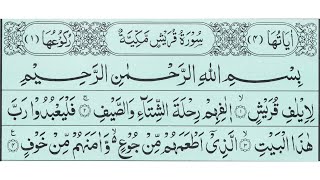 اٰيَاتُهَا (٤) سُوْرَةُ قُرَيْشٍ مَكِّيَّةٌ رُكُوْعُهَا (١)
بِسْمِ اللهِ الرَّحْمٰنِ الرَّحِيْمِ
لِاِيْلٰفِ قُرَيْشٍ ۝١ اٖلٰفِهِمْ رِحْلَةَ الشِّتَآءِ وَالصَّيْفِ ۝٢ فَلْيَعْبُدُوْا رَبَّ
هٰذَا الْبَيْتِ ۝٣ الَّذِيْٓ اَطْعَمَهُمْ مِّنْ جُوْعٍ ۙ وَّاٰمَنَهُمْ مِّنْ خَوْفٍ ۝٤